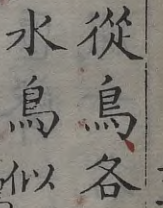 從鳥各
水鳥似